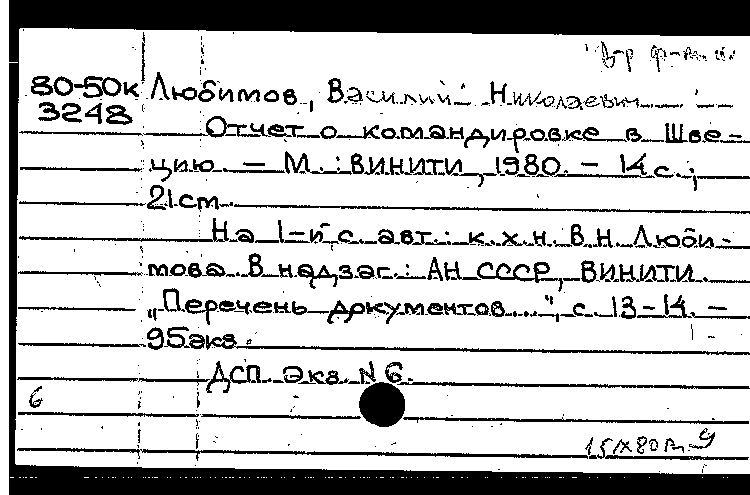 80-50к Любимов, Василий Николаевич
3248
Отчет о командировке в Шве-
цию. - М.: ВИНИТИ, 1980. - 14 с.;
21 cm.
На 1-й с. авт.: к.х.н. В.Н. Люби-
мова. В надзаг.: АН СССР, ВИНИТИ.
„Перечень документов...", с. 13-14. -
95экз.
ДСП. Экз. N 6.
6